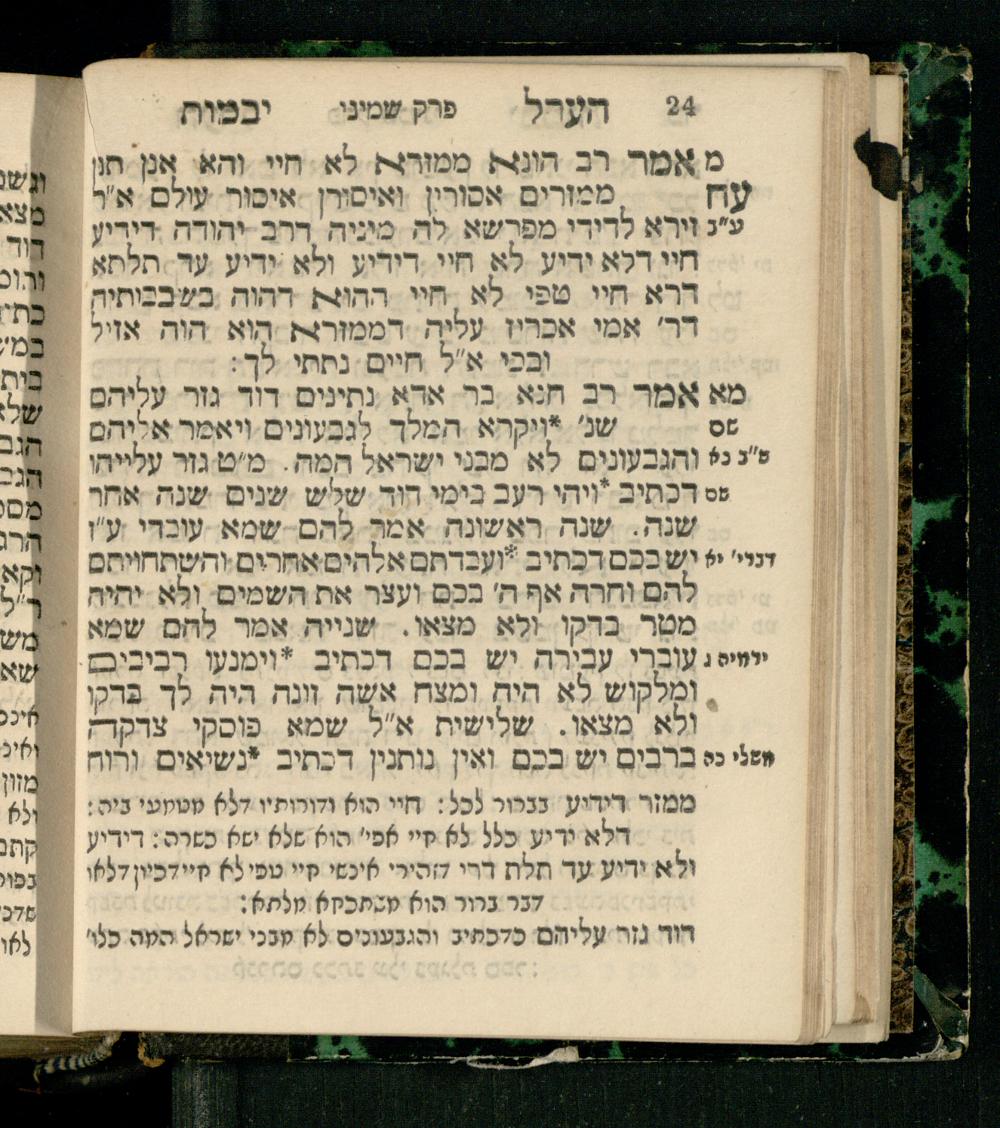 24 הערל פרק שמיני יבמות
מ אמר רב הונא ממזרא לא חיי והא אנן תנן
עח ממזרים אסורין ואיסורן איסור עולם א"ר
ע"ב זירא לדידי מפרשא לה מיניה דרב יהודה דידיע
חיי דלא ידיע לא חיי דידיע ולא ידיע עד תלתא
דרא חיי טפי לא חיי ההוא דהוה בשבבותיה
דר' אמי אכריז עליה דממזרא הוא הוה אזיל
ובכי א"ל חיים נתתי לך:
מא אמר רב חנא בר אדא נתינים דוד גזר עליהם
שם שנ' *ויקרא המלך לגבעונים ויאמר אליהם
ש"ב כא והגבעונים לא מבני ישראל המה. מ"ט גזר עלייהו
שם דכתיב *ויהי רעב בימי דוד שלש שנים שנה אחר
שנה. שנה ראשונה אמר להם שמא עובדי ע"ז
דברי' יא יש בכם דכתיב *ועבדתם אלהים אחרים והשתחויתם
להם וחרה אף ה' בכם ועצר את השמים ולא יהיה
מטר בדקו ולא מצאו. שנייה אמר להם שמא
ירמיה ג עוברי עבירה יש בכם דכתיב *וימנעו רביבים
ומלקוש לא היה ומצח אשה זונה היה לך בדקו
ולא מצאו. שלישית א"ל שמא פוסקי צדקה
משלי כה ברבים יש בכם ואין נותנין דכתיב *נשיאים ורוח
ממזר דידיע בברור לכל: חיי הוא ודורותיו דלא מטמעי ביה:
דלא ידיע כלל לא חיי אפי' הוא שלא ישא כשרה: דידיע
ולא ידיע עד תלת דרי דזהירי אינשי חיי טפי לא חיי דכיון דלאו
דבר ברור הוא מבתכחא מלתא:
דוד גזר עליהם כדכתיב והגבעונים לא מבני ישראל המה כלו'